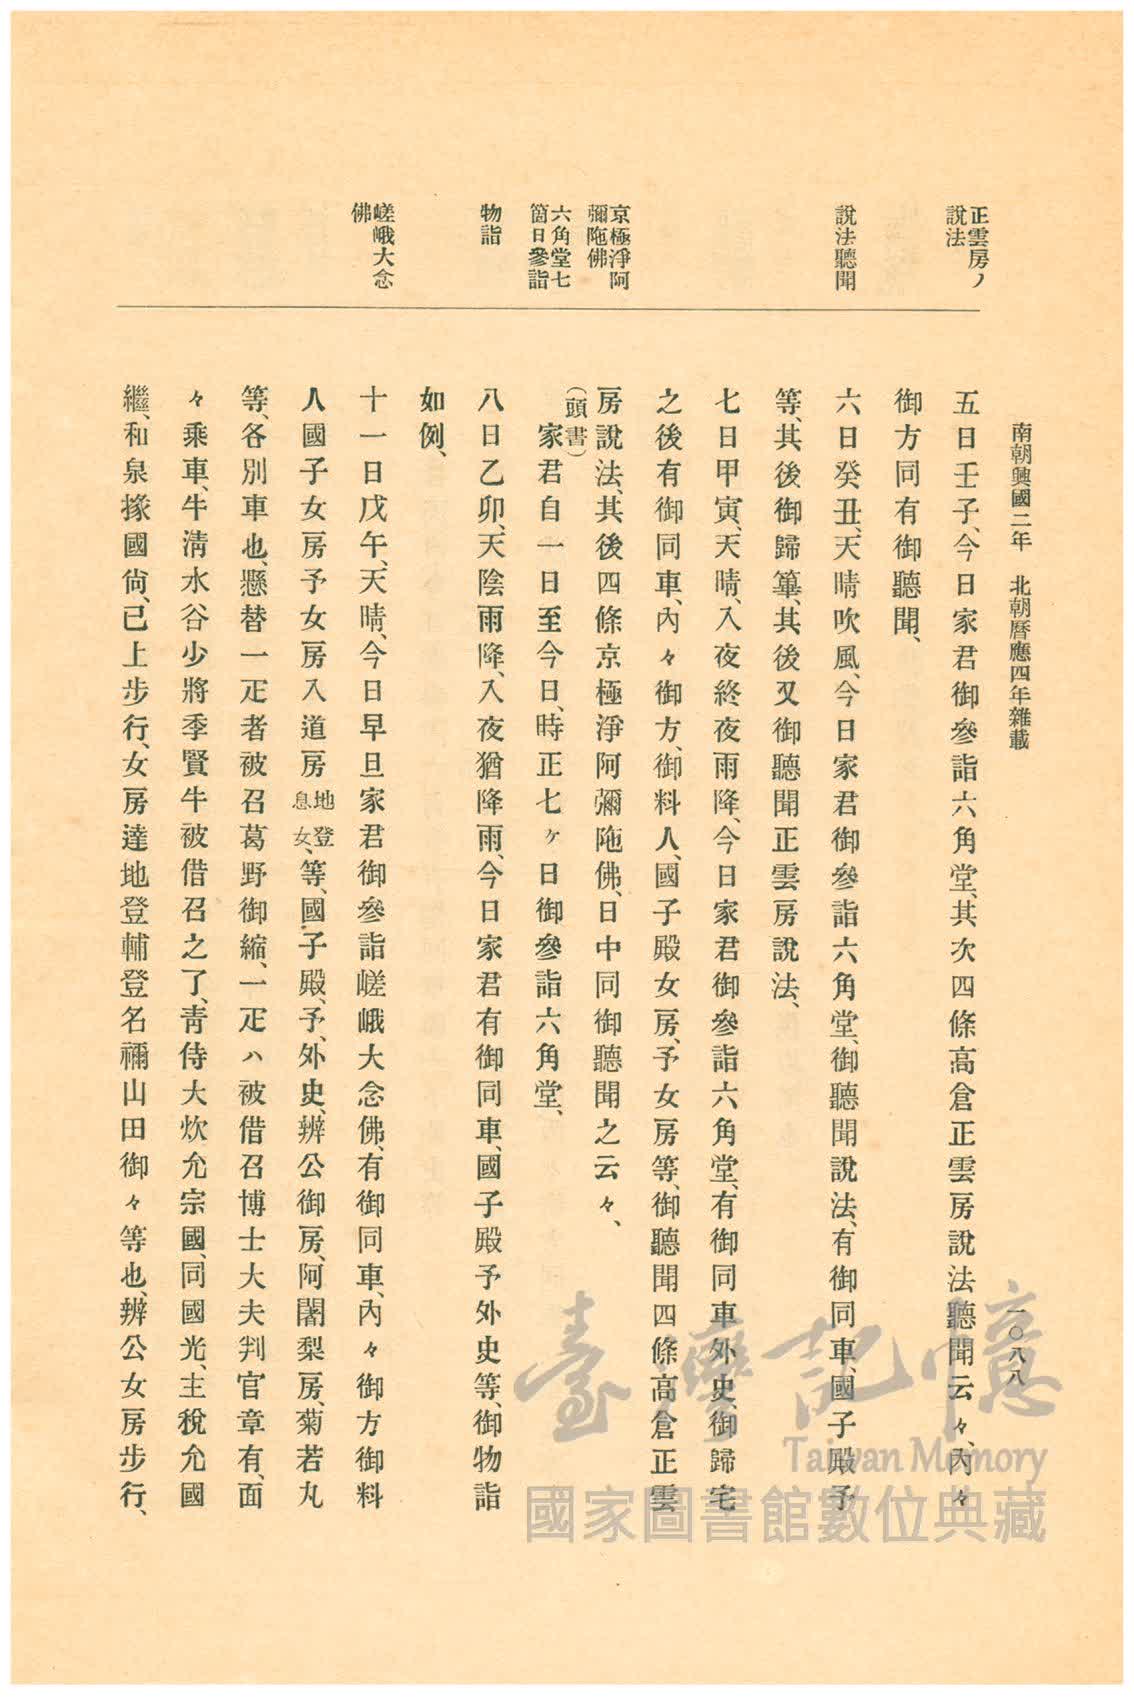 南朝興國二年　北朝曆應四年雜載
一〇八八
正雲房ノ
說法
說法聽聞
京極淨阿
彌陁佛
六角堂七
箇日參詣
物詣
嵯峨大念
佛
五日壬子、今日家君御參詣六角堂、其次四條高倉正雲房說法聽聞云々、內々
御方同有御聽聞、
六日癸丑、天晴吹風、今日家君御參詣六角堂、御聽聞說法、有御同車、國子殿予
等、其後御歸篳、其後又御聽聞正雲房說法、
七日甲寅、天晴、入夜終夜雨降、今日家君御參詣六角堂、有御同車外史、御歸宅
之後有御同車、內々御方、御料人、國子殿女房、予女房等、御聽聞四條高倉正雲
房說法、其後四條京極淨阿彌陁佛、日中同御聽聞之云々、
（頭書）
家君自一日至今日、時正七ヶ日御參詣六角堂、
八日乙卯、天陰雨降、入夜猶降雨、今日家君有御同車、國子殿予外史等、御物詣
如例、
十一日戊午、天晴、今日早旦家君御參詣嵯峨大念佛、有御同車、內々御方御料
人國子女房予女房入道房地登息女、等、國子殿、予、外史、辨公御房、阿闍梨房、菊若丸
等、各別車也、懸替一疋者被召葛野御縮、一疋ハ被借召博士大夫判官章有、面
々乘車、牛淸水谷少將季賢牛被借召之了、靑侍大炊允宗國、同國光、主稅允國
繼、和泉掾國尙、已上步行、女房達地登輔登名禰山田御々等也、辨公女房步行、
臺灣記憶
Taiwan Memory
國家圖書館數位典藏